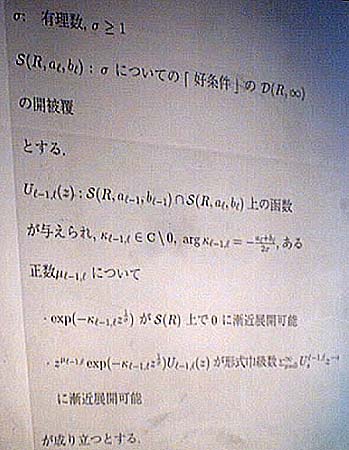 σ: 有理数, σ ≥ 1
S(R, a_ℓ, b_ℓ) : σ についての「好条件」の D(R, ∞)
の開被覆
とする.
U_{ℓ-1,ℓ}(z) : S(R, a_{ℓ-1}, b_{ℓ-1}) ∩ S(R, a_ℓ, b_ℓ) 上の函数
が与えられ, κ_{ℓ-1,ℓ} ∈ C \ 0, arg κ_{ℓ-1,ℓ} = -\frac{a_ℓ+b_ℓ}{2σ}, ある
正数 μ_{ℓ-1,ℓ} について
· exp(-κ_{ℓ-1,ℓ} z^{\frac{1}{σ}}) が S(R) 上で 0 に漸近展開可能
· z^{μ_{ℓ-1,ℓ}} exp(-κ_{ℓ-1,ℓ} z^{\frac{1}{σ}}) U_{ℓ-1,ℓ}(z) が形式巾級数 Σ U_s^{ℓ-1,ℓ} z^{-s}
に漸近展開可能
が成り立つとする.